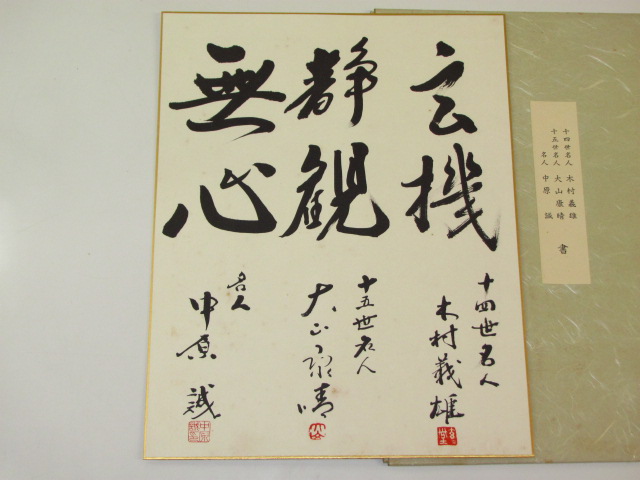 玄機
十四世名人
木村義雄
静観
十五世名人
大山康晴
無心
名人
中原誠
十四世名人 木村義雄
十五世名人 大山康晴
名人 中原誠
書